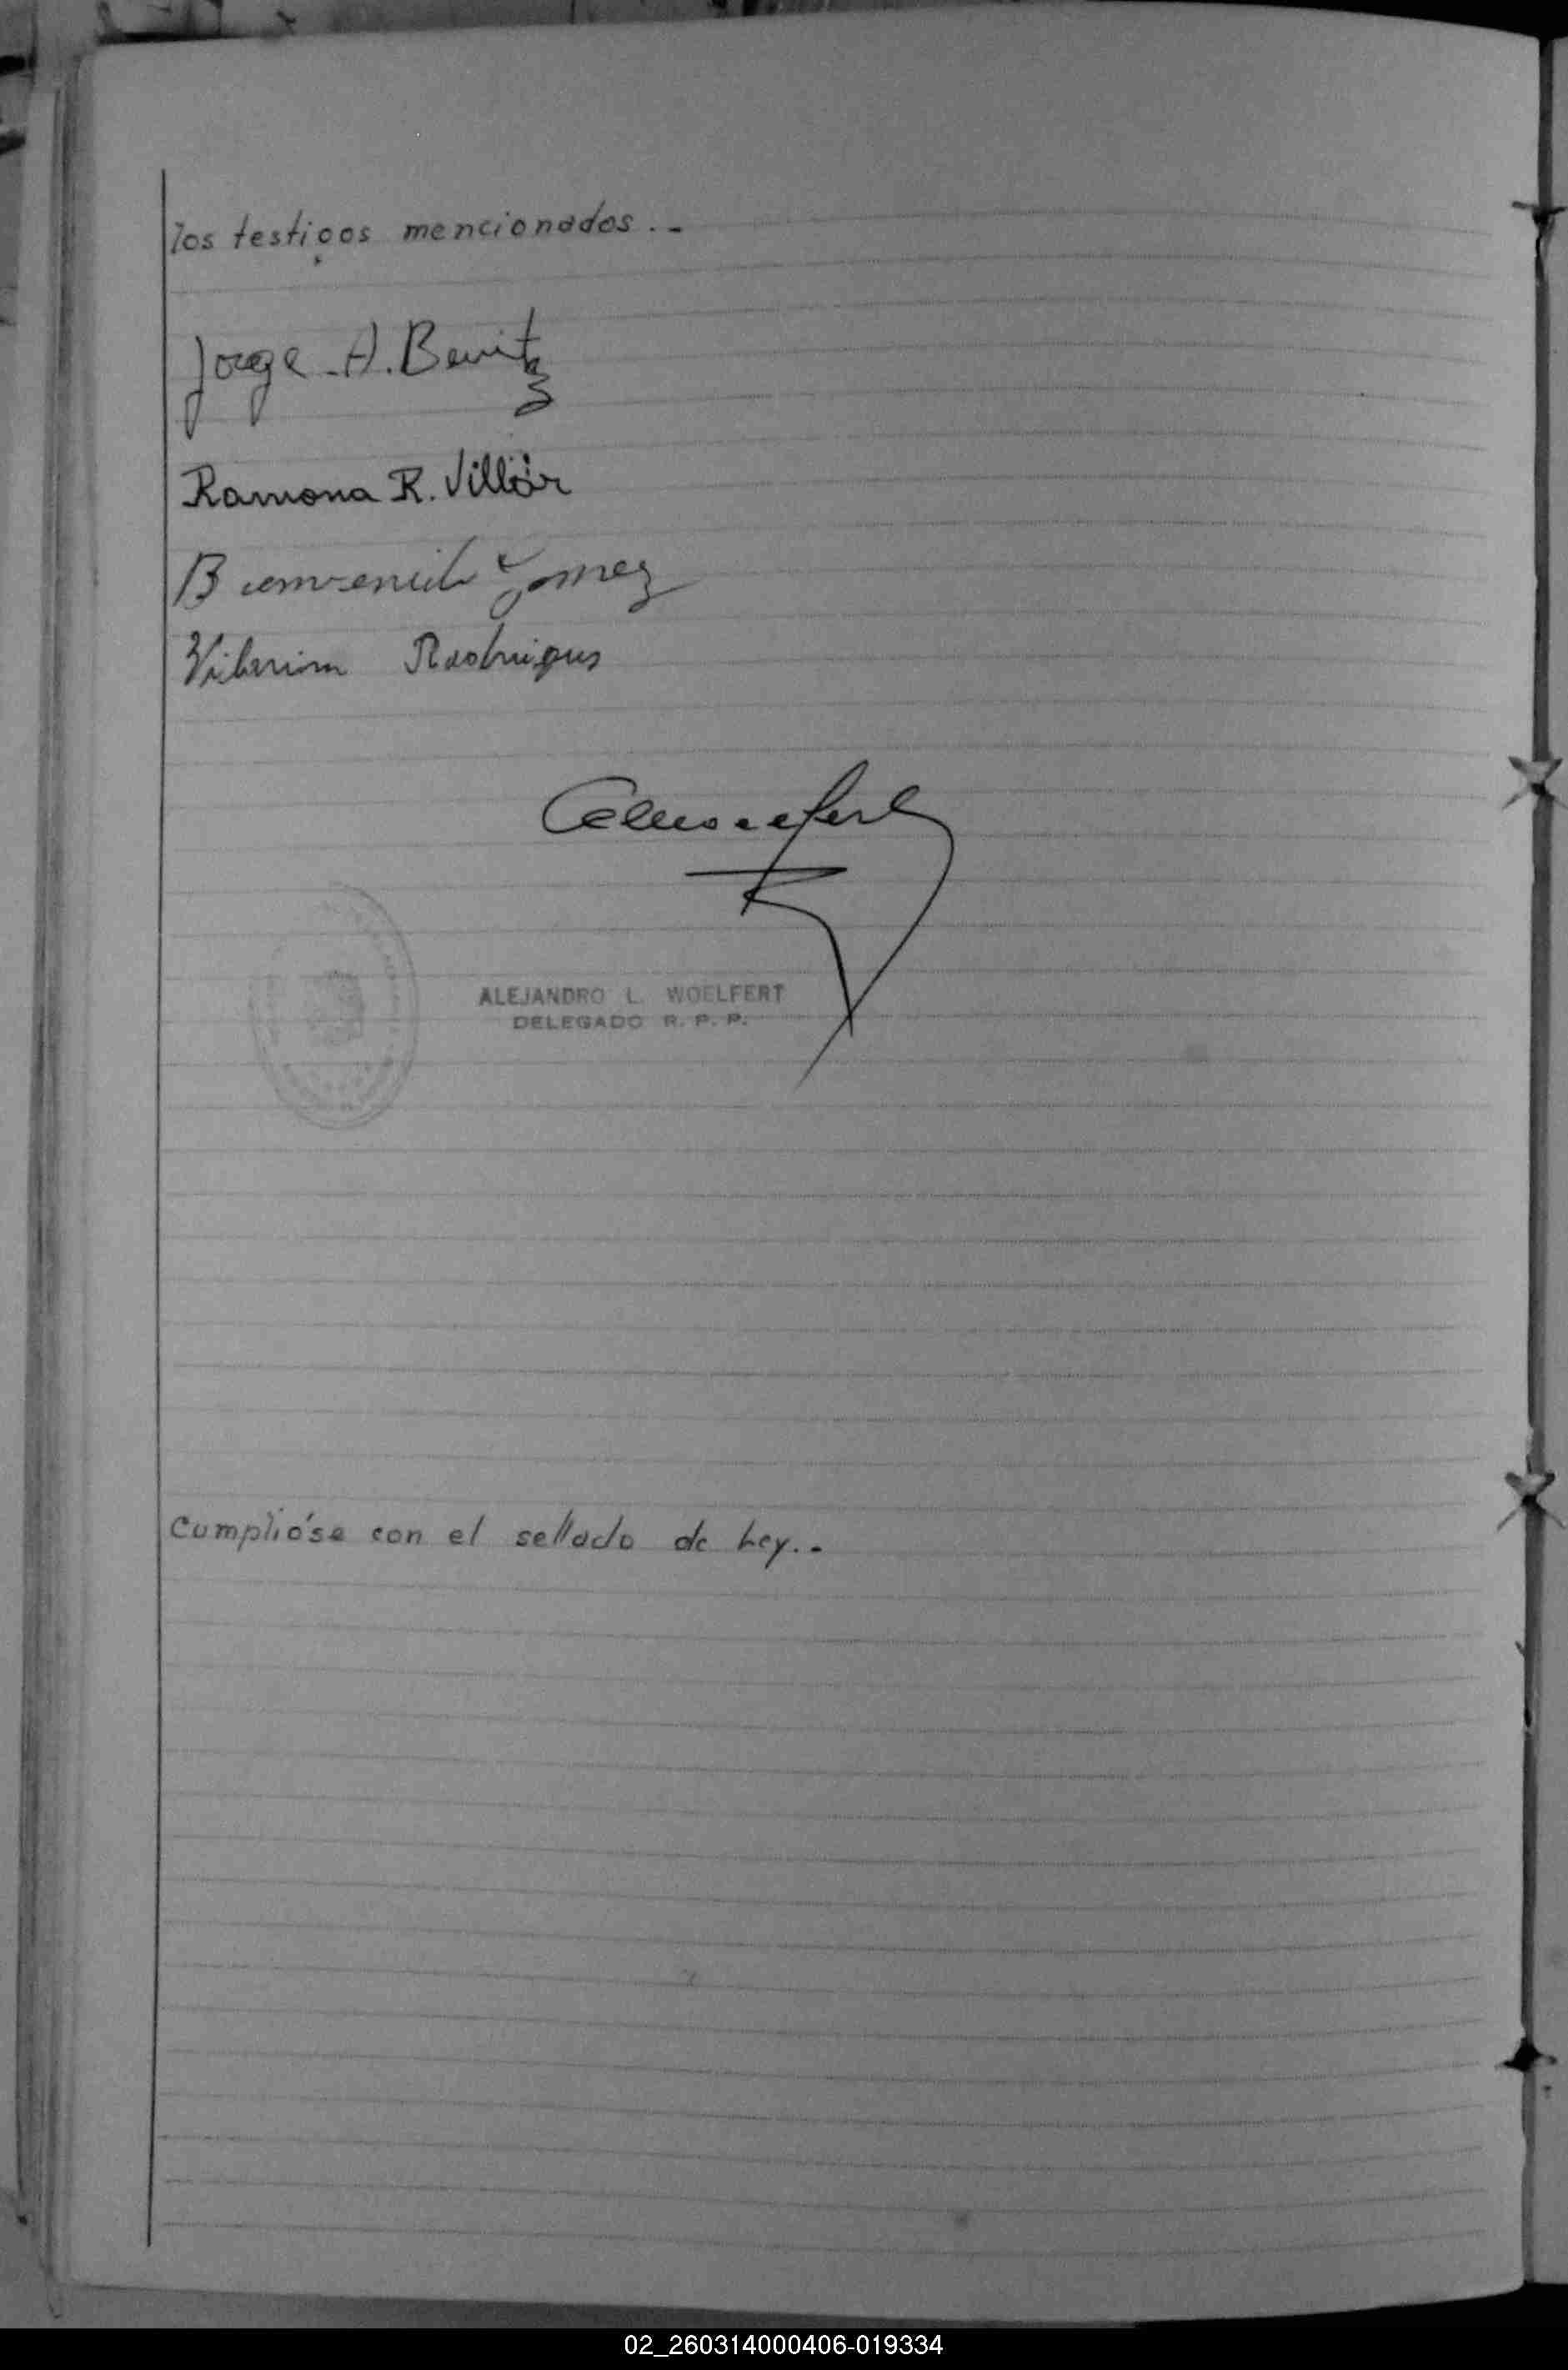 los testigos mencionados..-
Jorge A. Benitez
Ramona R. Villar
Bienvenido Gomez
Rodrigues
ALEJANDRO L. WOELFERT
DELEGADO R. P. P.
Cumplióse con el sellado de Ley..-
02_260314000406-019334